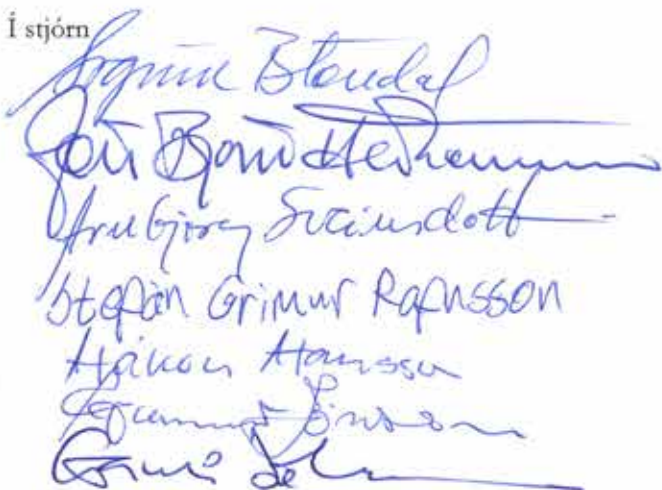 Í stjórn
Sigrún Blöndal
Jón Björn Hákonarson
Arnbjörg Sveinsdótt
Stefán Grímur Rafnsson
Hákon Hansson
Gunnar Jónsson